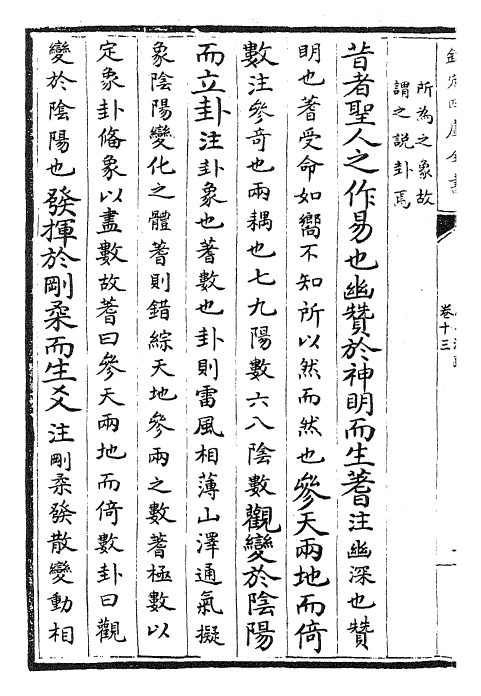 所為之象故
謂之説卦焉
昔者聖人之作易也幽贊於神明而生蓍注幽深也贊
明也蓍受命如嚮不知所以然而然也參天兩地而倚
數注參奇也兩耦也七九陽數六八陰數觀變於陰陽
而立卦注卦象也蓍數也卦則雷風相薄山澤通氣擬
象陰陽變化之體蓍則錯綜天地參兩之數蓍極數以
定象卦備象以盡數故蓍曰參天兩地而倚數卦曰觀
變於陰陽也發揮於剛柔而生爻注剛柔發散變動相
卷十三